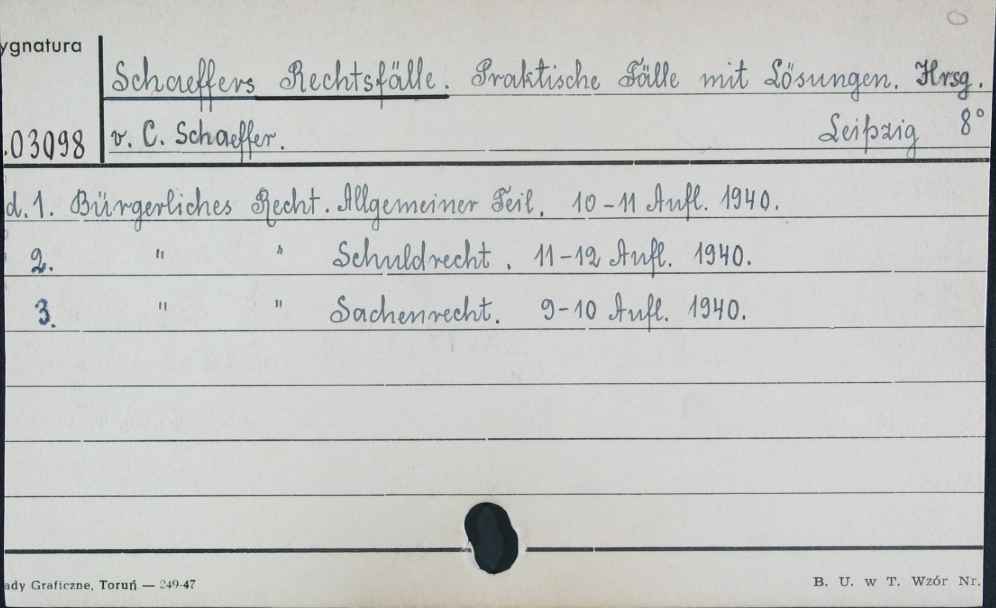 ygnatura
Schaeffers Rechtsfälle. Praktische Fälle mit Lösungen. Hrsg.
.03098 v. C. Schaeffer. Leipzig 8°
d. 1. Bürgerliches Recht. Allgemeiner Teil. 10-11 Aufl. 1940.
2. " " Schuldrecht. 11-12 Aufl. 1940.
3. " " Sachenrecht. 9-10 Aufl. 1940.
ady Graficzne, Toruń — 249-47 B. U. w T. Wzór Nr.